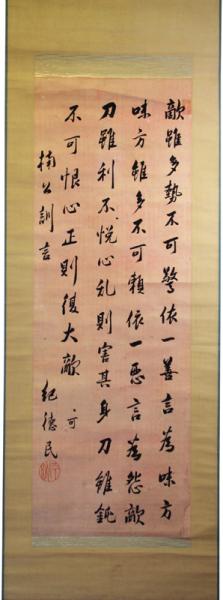 敵雖多勢不可驚依一善言為味方
味方雖多不可賴依一惡言為怨敵
刀雖利不悅心乱則害其身刀雖鈍
不可恨心正則復大敵 可
楠公訓言
紀德民